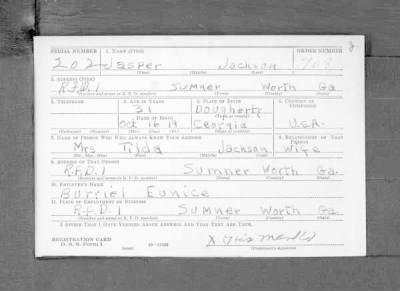 SERIAL NUMBER 1. NAME (Print) ORDER NUMBER
202 Jasper Jackson 708
(First) (Middle) (Last)
2. ADDRESS (Print)
R.F.D. 1 Sumner Worth Ga.
(Number and street or R. F. D. number) (Town) (County) (State)
3. TELEPHONE 4. AGE IN YEARS 5. PLACE OF BIRTH 6. COUNTRY OF CITIZENSHIP
31 Dougherty
DATE OF BIRTH
Oct 16 19 Georgia U.S.A.
7. NAME OF PERSON WHO WILL ALWAYS KNOW YOUR ADDRESS 8. RELATIONSHIP OF THAT PERSON
Mrs Tilda Jackson Wife
(Mr., Mrs., Miss) (First) (Middle) (Last)
9. ADDRESS OF THAT PERSON
R.F.D. 1 Sumner Worth Ga.
(Number and street or R. F. D. number) (Town) (County) (State)
10. EMPLOYER'S NAME
Burriel Eunice
11. PLACE OF EMPLOYMENT OR BUSINESS
R.F.D. 1 Sumner Worth Ga.
(Number and street or R. F. D. number) (Town) (County) (State)
I AFFIRM THAT I HAVE VERIFIED ABOVE ANSWERS AND THAT THEY ARE TRUE.
REGISTRATION CARD
D. S. S. FORM 1 X His Mark
(Registrant's signature)